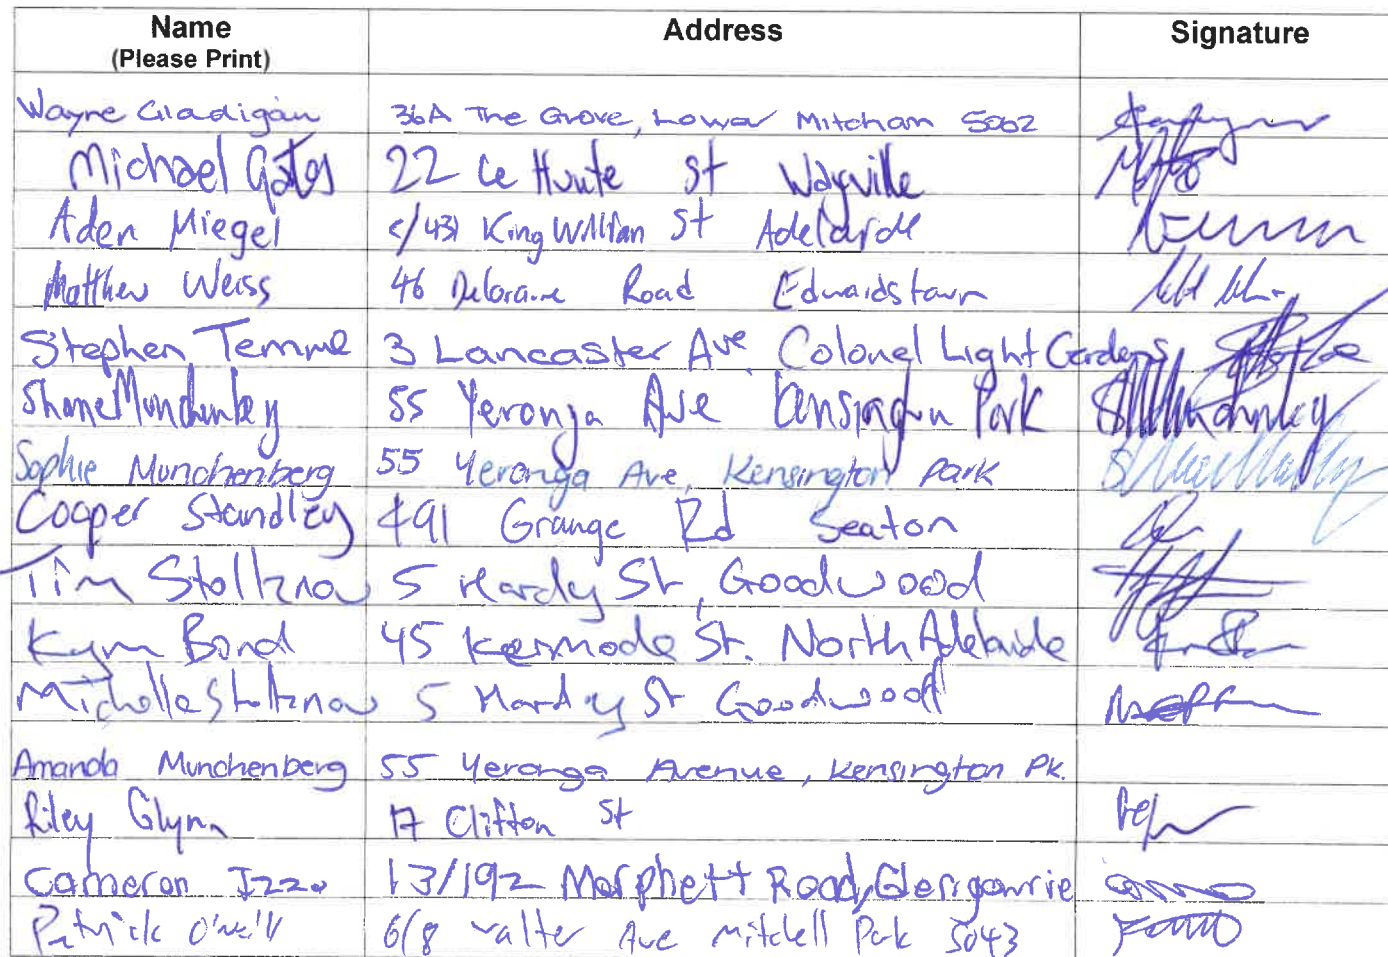 Name Address Signature
(Please Print)
Wayne Gladigau 36A The Grove, Lower Mitcham 5062
Michael Gates 22 Le Hunte St Wayville
Aden Miegel /431 King William St Adelaide
Matthew Weiss 46 Deloraine Road Edwardstown
Stephen Temme 3 Lancaster Ave Colonel Light Gardens
Shane Munchenberg 55 Yeronga Ave Kensington Park
Sophie Munchenberg 55 Yeronga Ave, Kensington Park
Cooper Standley 491 Grange Rd Seaton
Tim Stoltznow 5 Hardy St, Goodwood
Kym Bond 45 Kermode St. North Adelaide
Michelle Stoltznow 5 Hardy St Goodwood
Amanda Munchenberg 55 Yeronga Avenue, Kensington Pk.
Riley Glynn 17 Clifton St
Cameron Izzo 13/192 Morphett Road, Glengowrie
Patrick O'Neill 6/8 Valter Ave Mitchell Park 5043